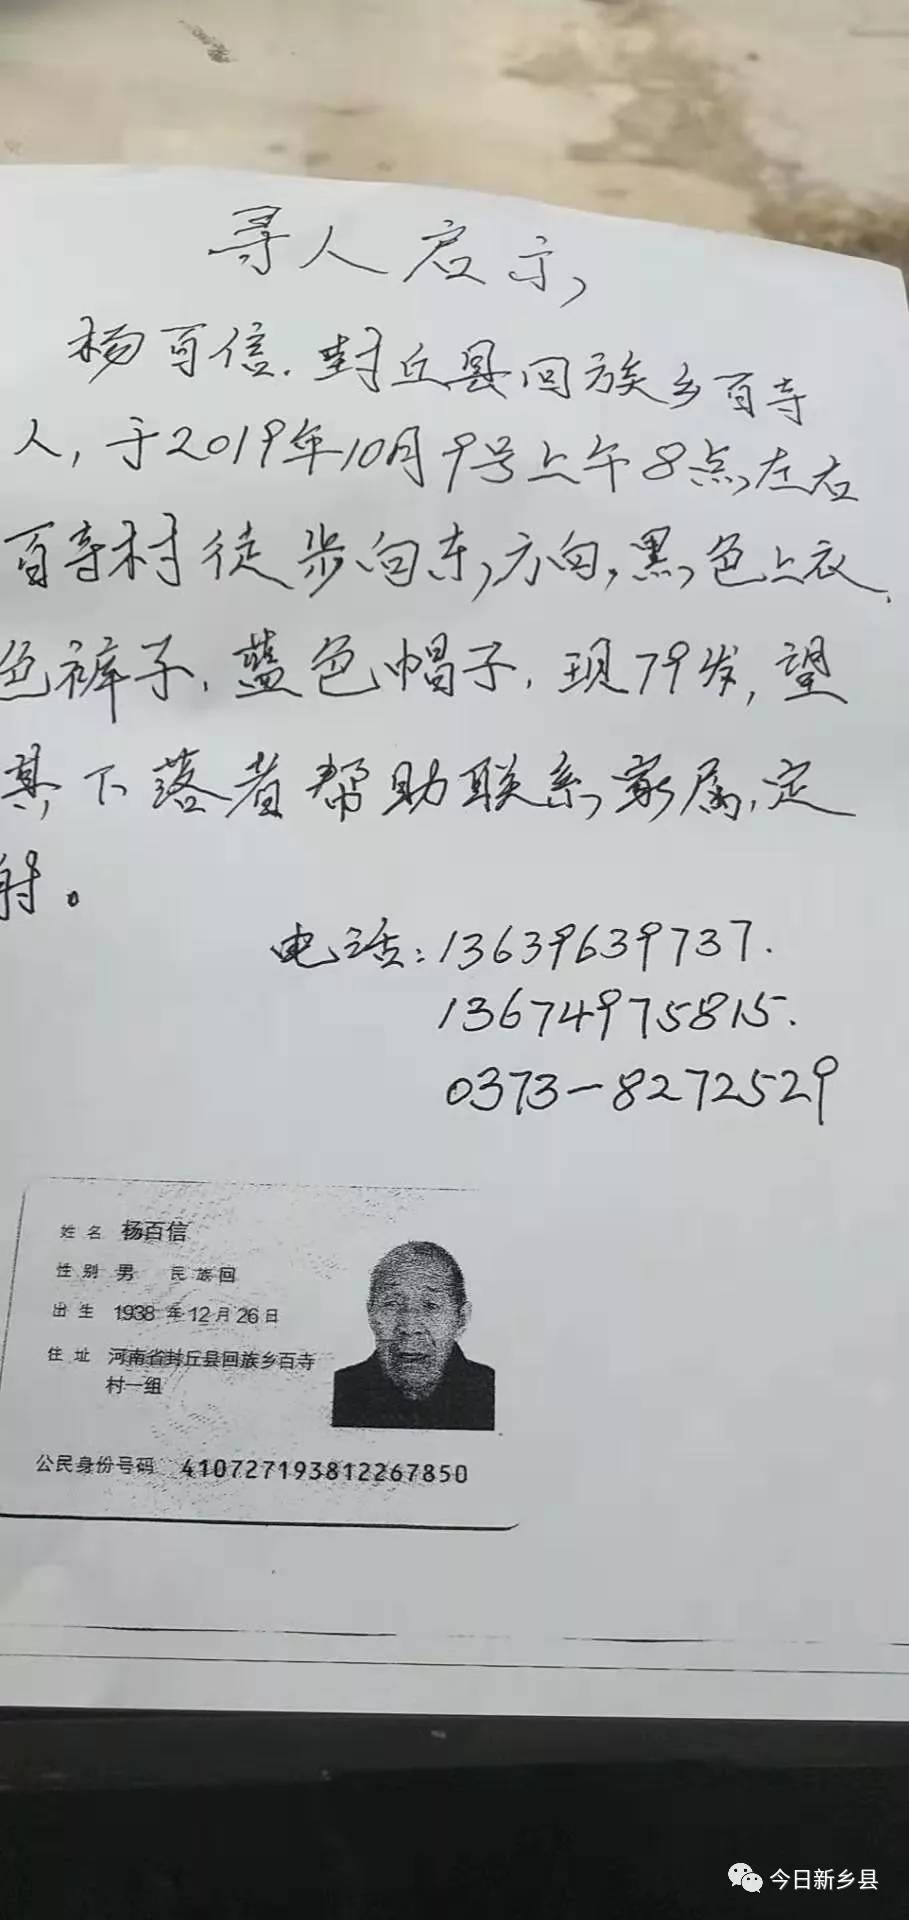 寻人启示
杨百信.封丘县回族乡百寺
人,于2019年10月9号上午8点左右
百寺村徒步向东方向,黑色上衣.
色裤子.蓝色帽子.现79岁,望
其下落者帮助联系家属.定
谢。
电话:13639639737.
13674975815.
0373-8272529
姓名 杨百信
性别 男 民族 回
出生 1938年12月26日
住址 河南省封丘县回族乡百寺
村一组
公民身份号码 410727193812267850
今日新乡县